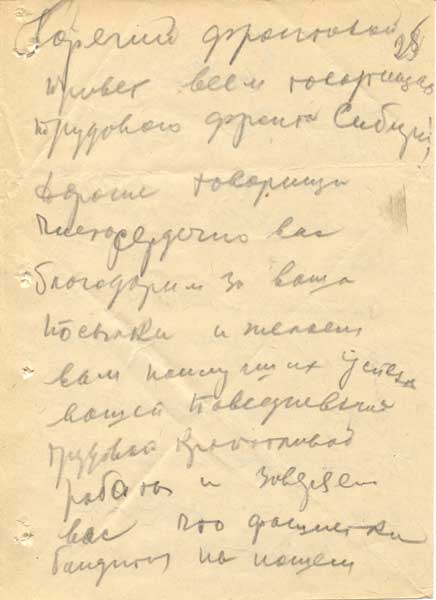 Горечий фронтовой
28
привет всем товарищам
трудового фронта Сибири,
дороие товарищи
Чистосердечно вас
благодарим за ваши
посылки и желаем
вам наилучших успехах
вашей повседневной
трудовой кропотливой
работы и заверяем
вас что фашистки
бандиты на нашем